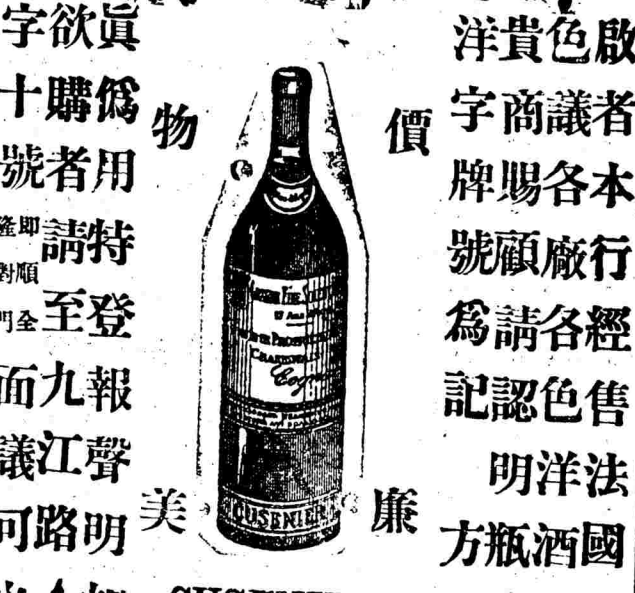 啟者本行經售法國
色議各廠各色洋酒
貴商賜顧請認明瓶
洋字牌號爲記方
價廉
物美
CUSENIER
眞僞用特登報聲明
欲購者請至九江路
字十號
即順全
隆對門
面議可